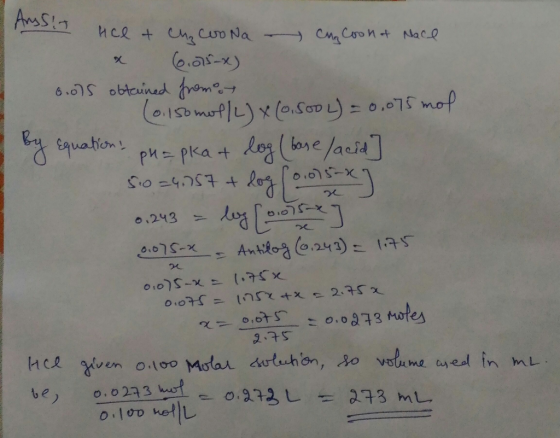 Ans5:→ HCl + CH3COONa ⟶ CH3COOH + NaCl
x (0.075-x)
0.075 obtained from:→
(0.150 mol/L) × (0.500 L) = 0.075 mol
By Equation: pH = pKa + log [base/acid]
5.0 = 4.757 + log [0.075-x / x]
0.243 = log [0.075-x / x]
0.075-x / x = Antilog (0.243) = 1.75
0.075-x = 1.75x
0.075 = 1.75x + x = 2.75x
x = 0.075 / 2.75 = 0.0273 moles
HCl given 0.100 Molar solution, so volume used in mL.
be, 0.0273 mol / 0.100 mol/L = 0.273 L = 273 mL